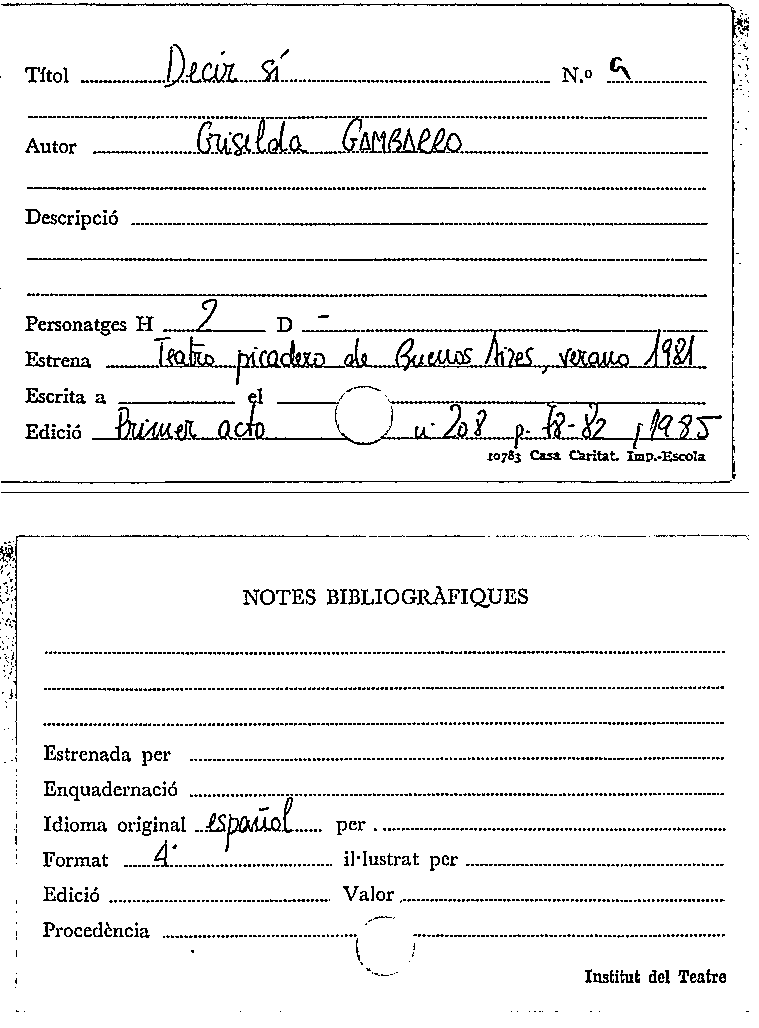 Títol Decir sí N.º 9
Autor Griselda GAMBARRO
Descripció
Personatges H 2 D -
Estrena Teatro picadero de Buenos Aires, verano 1981
Escrita a el
Edició Primer acto n. 208 p. 78-82, 1985
10783 Casa Caritat. Imp.-Escola
NOTES BIBLIOGRÀFIQUES
Estrenada per
Enquadernació
Idioma original español per
Format 4º il·lustrat per
Edició Valor
Procedència
Institut del Teatre